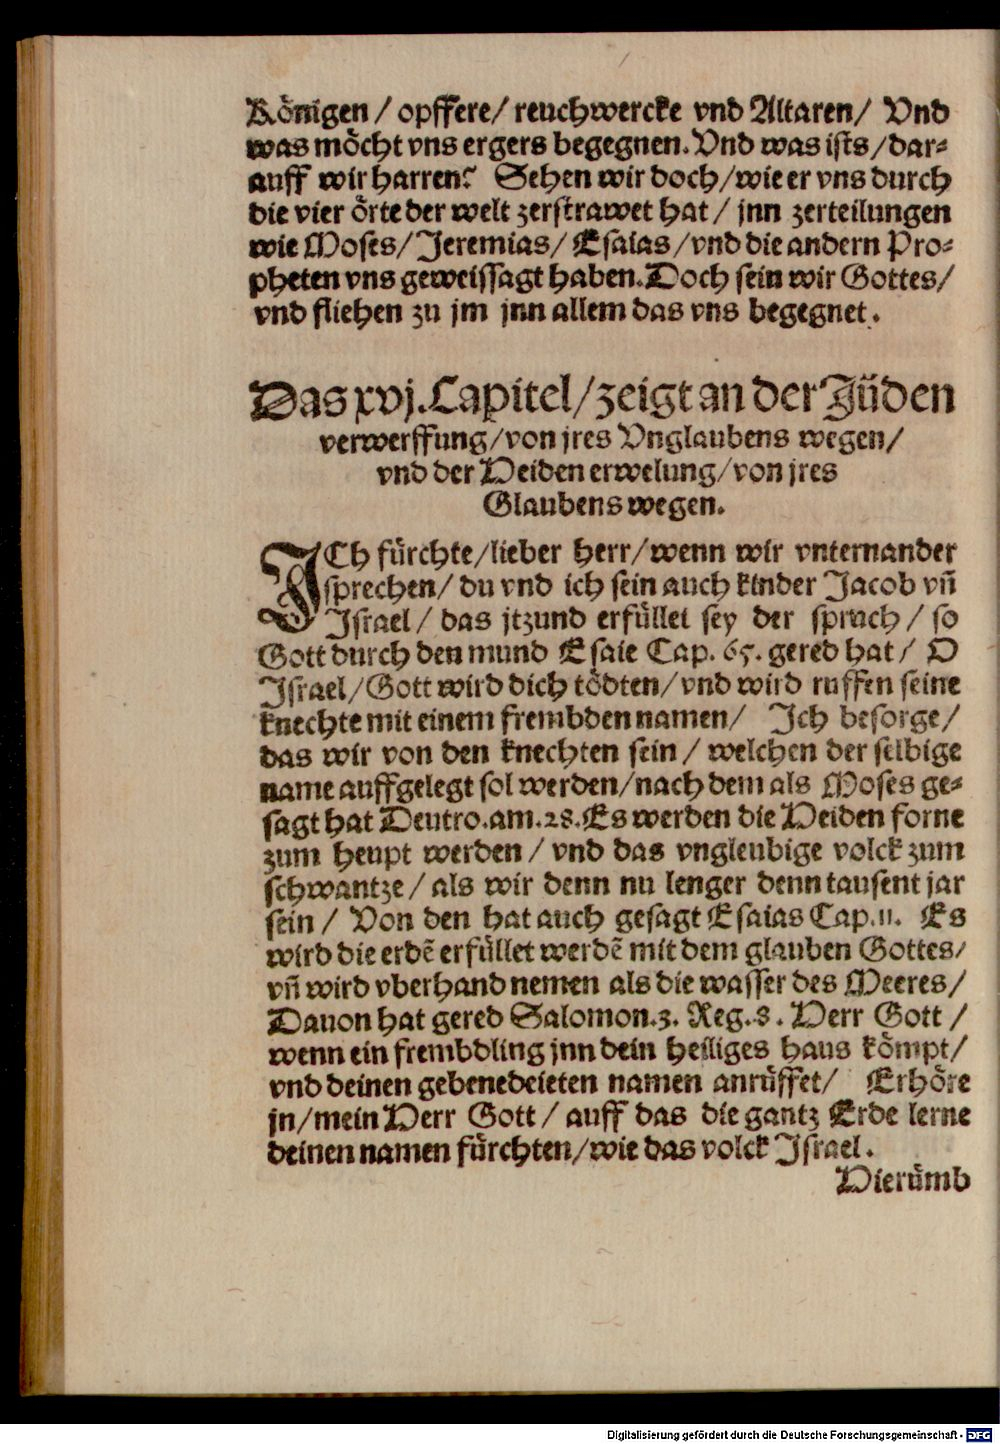 Koͤnigen / opffere / reuchwercke vnd Altaren / Vnd
was moͤcht vns ergers begegnen. Vnd was ists / dar⸗
auff wir harren? Sehen wir doch / wie er vns durch
die vier oͤrte der welt zerstrawet hat / jnn zerteilungen
wie Moses / Jeremias / Esaias / vnd die andern Pro⸗
pheten vns geweissagt haben. Doch sein wir Gottes /
vnd fliehen zu jm jnn allem das vns begegnet.
Das xvj. Capitel / zeigt an der Juͤden
verwerffung / von jres Vnglaubens wegen /
vnd der Heiden erwelung / von jres
Glaubens wegen.
ICh fuͤrchte / lieber herr / wenn wir vnternander
sprechen / du vnd ich sein auch kinder Jacob vñ
Israel / das jtzund erfuͤllet sey der spruch / so
Gott durch den mund Esaie Cap. 65. gered hat / O
Israel / Gott wird dich toͤdten / vnd wird ruffen seine
knechte mit einem frembden namen / Ich besorge /
das wir von den knechten sein / welchen der selbige
name auffgelegt sol werden / nach dem als Moses ge⸗
sagt hat Deutro. am. 28. Es werden die Heiden forne
zum heupt werden / vnd das vngleubige volck zum
schwantze / als wir denn nu lenger denn tausent jar
sein / Von den hat auch gesagt Esaias Cap. 11. Es
wird die erdẽ erfuͤllet werdẽ mit dem glauben Gottes /
vñ wird vberhand nemen als die wasser des Meeres /
Dauon hat gered Salomon. 3. Reg. 8. Herr Gott /
wenn ein frembdling jnn dein heiliges haus koͤmpt /
vnd deinen gebenedeieten namen anruͤffet / Erhoͤre
jn / mein Herr Gott / auff das die gantz Erde lerne
deinen namen fuͤrchten / wie das volck Israel.
Hieruͤmb
Digitalisierung gefördert durch die Deutsche Forschungsgemeinschaft - DFG